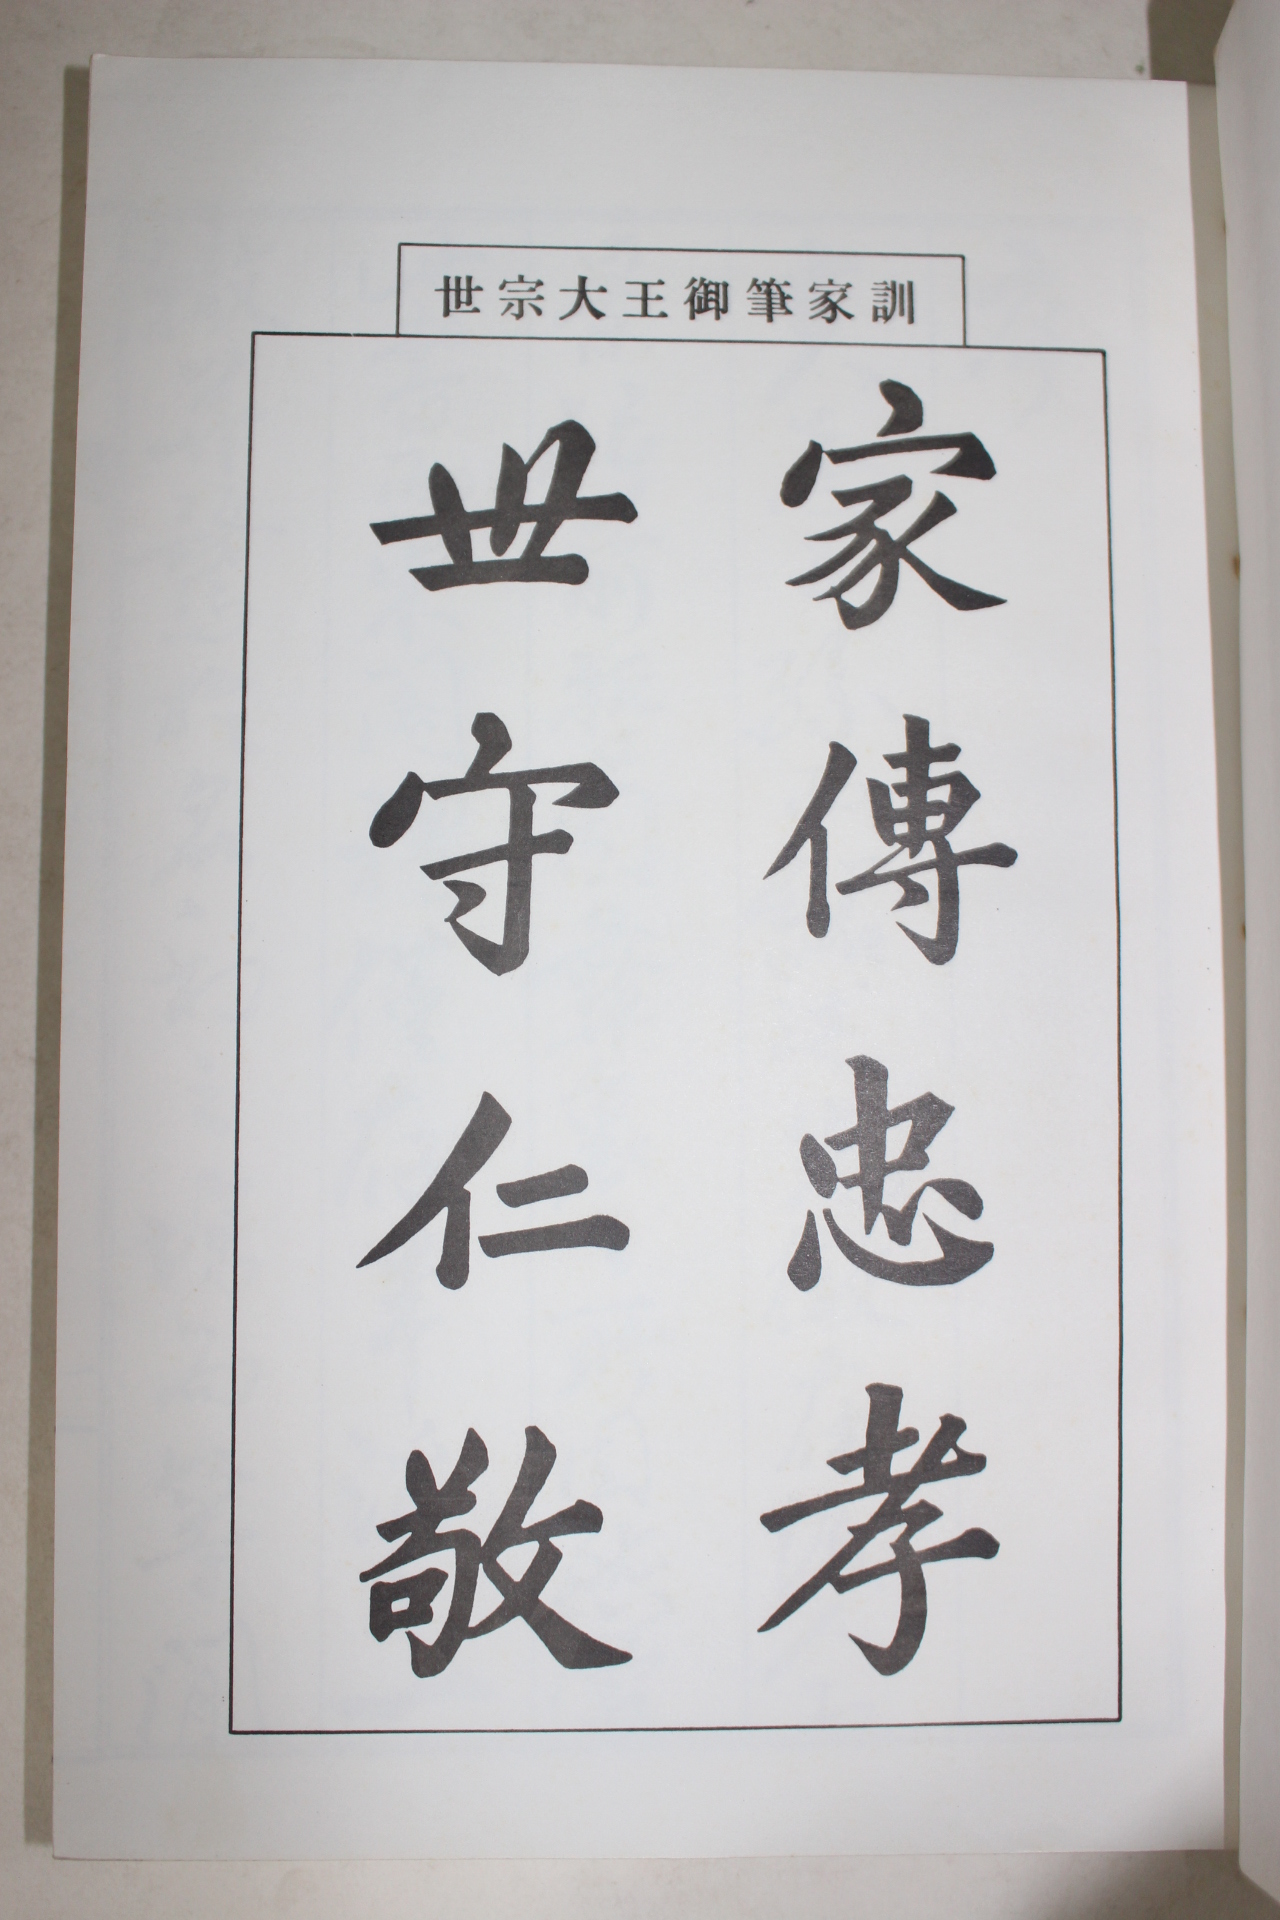 世宗大王御筆家訓
家傳忠孝
世守仁敬